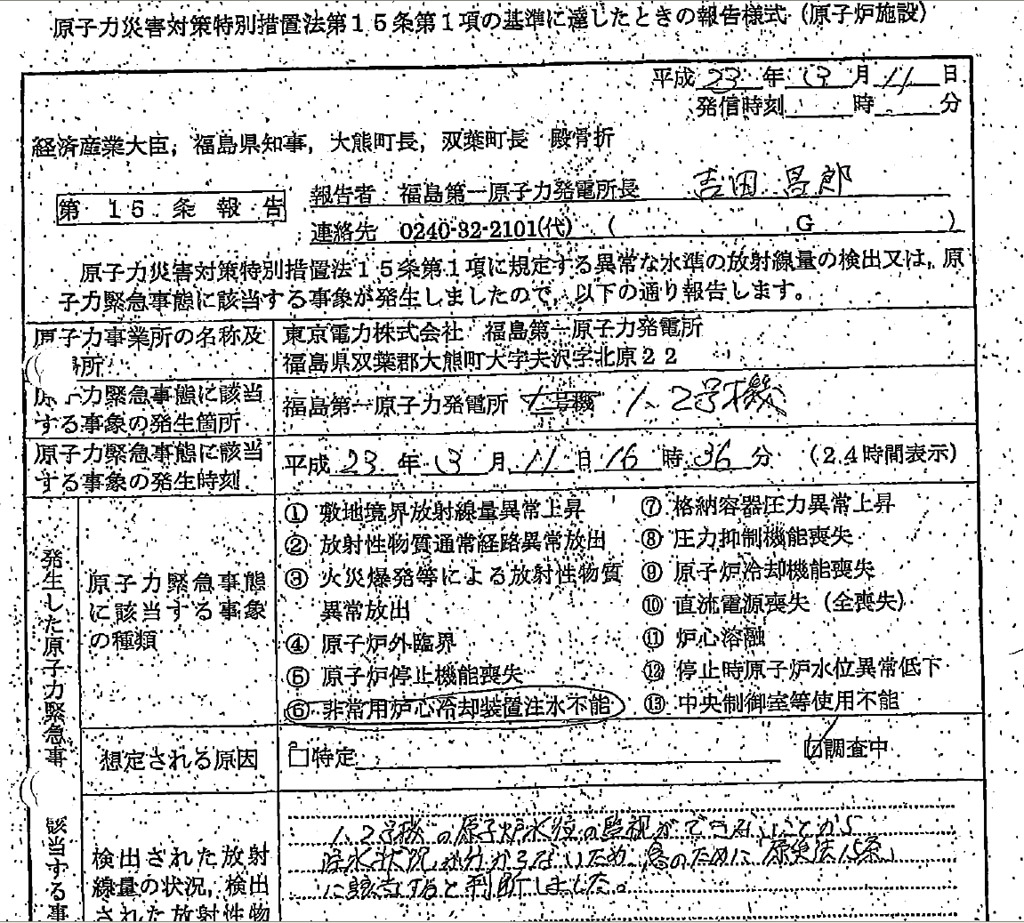 原子力災害対策特別措置法第15条第1項の基準に達したときの報告様式（原子炉施設）
平成 23 年 3 月 11 日
発信時刻 時 分
経済産業大臣，福島県知事，大熊町長，双葉町長 殿
第 15 条 報 告
報告者 福島第一原子力発電所長 吉田 昌郎
連絡先 0240-32-2101(代) ( G )
原子力災害対策特別措置法15条第1項に規定する異常な水準の放射線量の検出又は，原
子力緊急事態に該当する事象が発生しましたので，以下の通り報告します。
原子力事業所の名称及
所
東京電力株式会社 福島第一原子力発電所
福島県双葉郡大熊町大字夫沢字北原22
力緊急事態に該当
する事象の発生箇所
福島第一原子力発電所 1、2号機
原子力緊急事態に該当
する事象の発生時刻
平成 23 年 3 月 11 日 16 時 36 分 （24時間表示）
発生した原子力緊急事
該当する事
原子力緊急事態
に該当する事象
の種類
① 敷地境界放射線量異常上昇
② 放射性物質通常経路異常放出
③ 火災爆発等による放射性物質
異常放出
④ 原子炉外臨界
⑤ 原子炉停止機能喪失
⑥ 非常用炉心冷却装置注水不能
⑦ 格納容器圧力異常上昇
⑧ 圧力抑制機能喪失
⑨ 原子炉冷却機能喪失
⑩ 直流電源喪失（全喪失）
⑪ 炉心溶融
⑫ 停止時原子炉水位異常低下
⑬ 中央制御室等使用不能
想定される原因
□特定
☑調査中
検出された放射
線量の状況，検出
された放射性物
1、2号機の原子炉水位の監視ができないことから
注水状況が分からないため、念のために「原災法15条」
に該当すると判断しました。